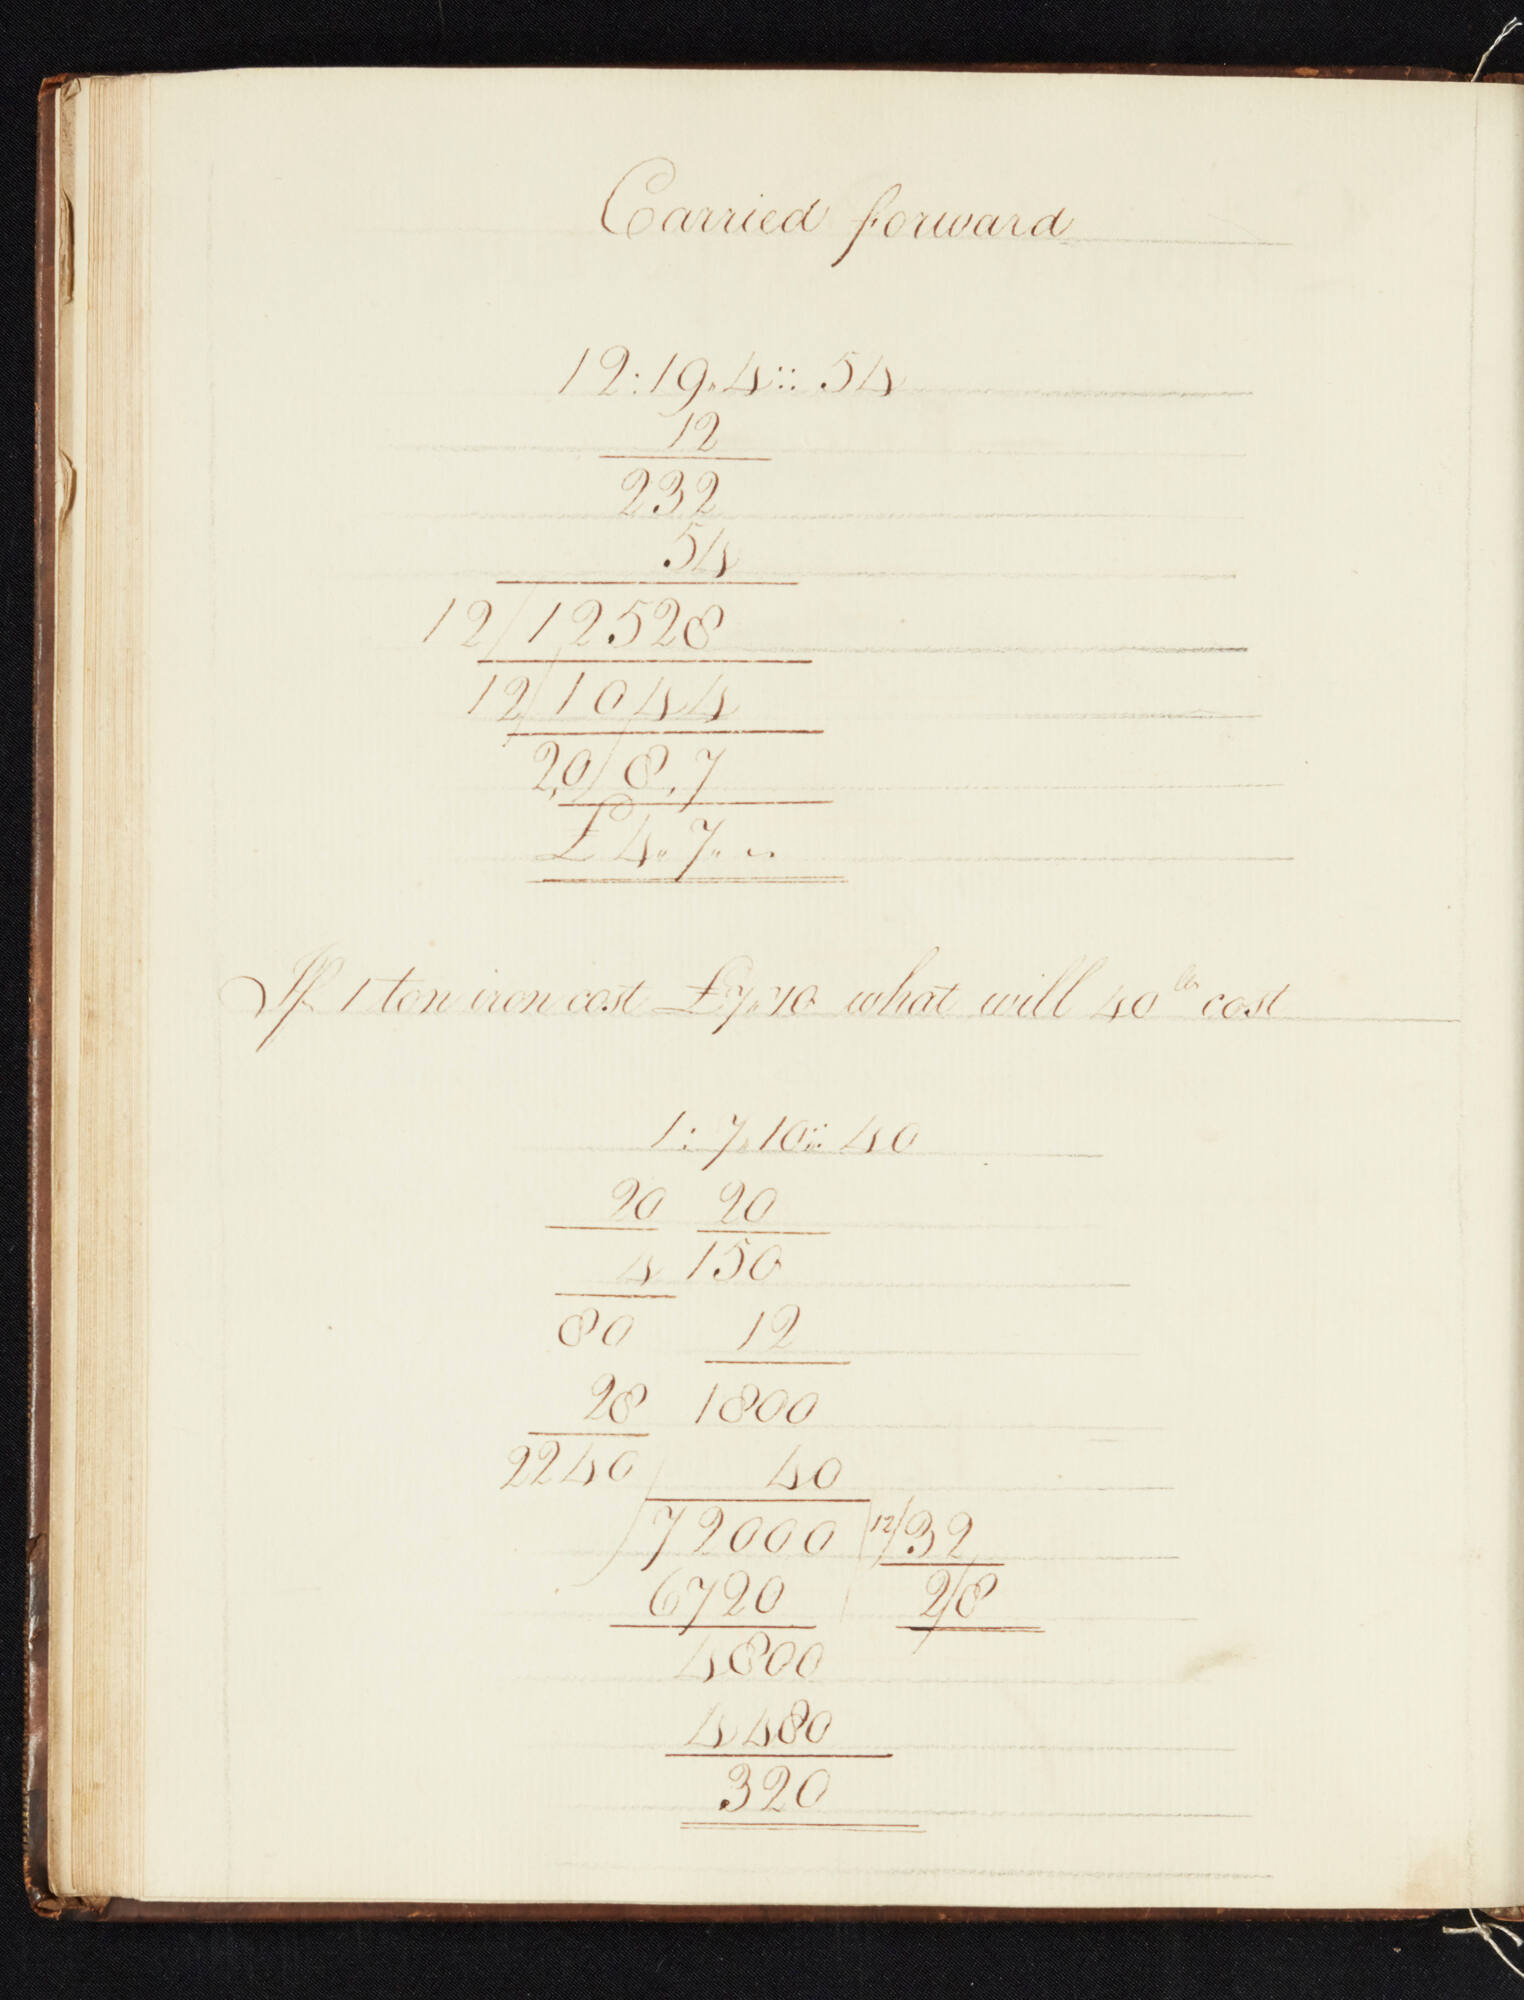 Carried forward
12 : 19 . 4 :: 54
12
232
54
12 / 12528
12 / 1044
2,0 / 8,7
£4 .. 7 .. ~
If 1 ton iron cost £7 .. 10 what will 40 lbs cost
1 : 7 . 10 :: 40
20 20
4 150
80 12
28 1800
2240 40
72000 12/32
6720 2/8
4800
4480
320